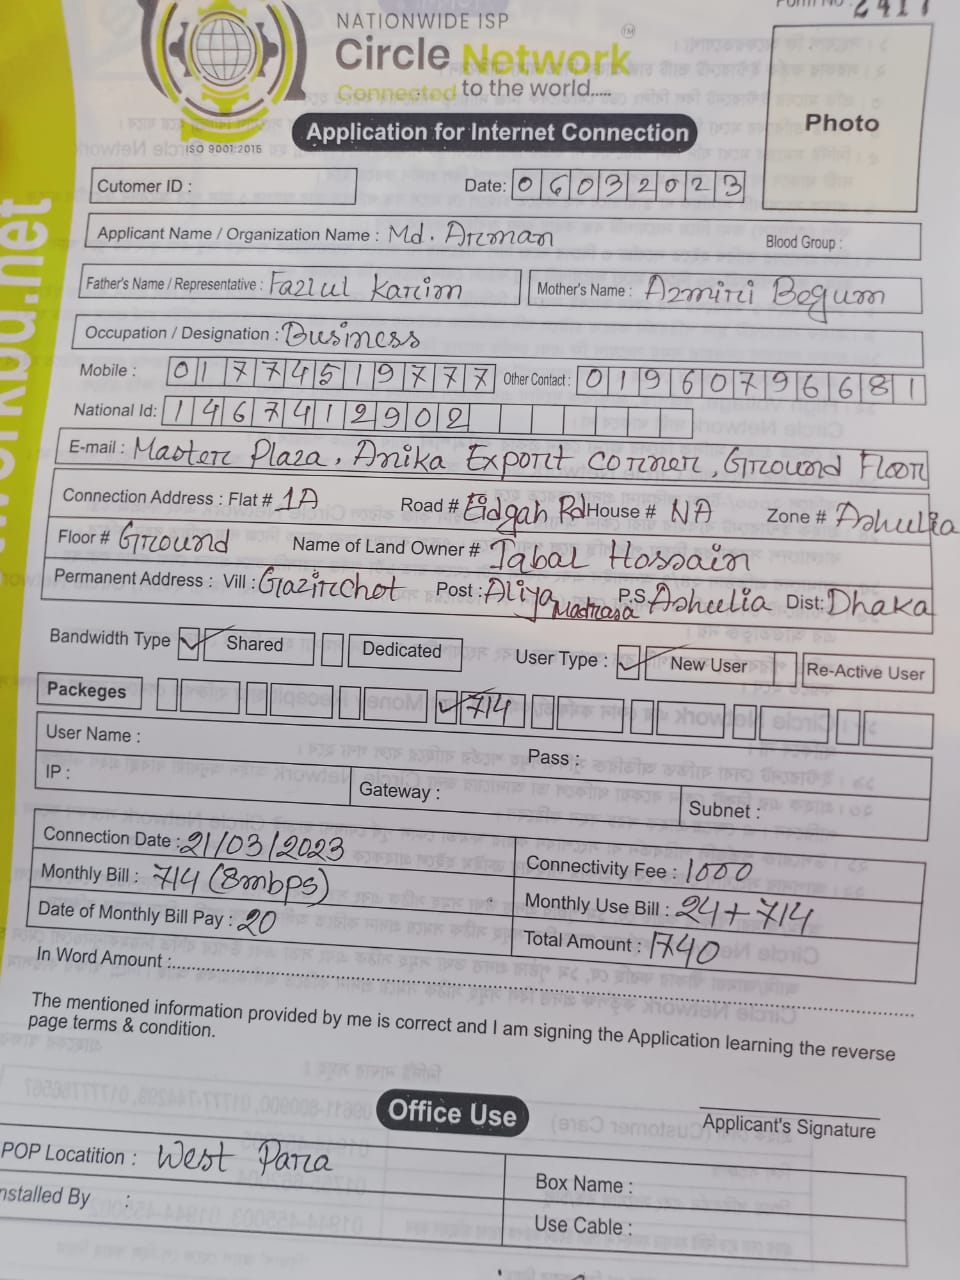 NATIONWIDE ISP
Circle Network TM
Connected to the world.....
ISO 9001:2015
Form No 2417
Photo
Application for Internet Connection
Cutomer ID : Date: 06032023
Applicant Name / Organization Name : Md. Arman Blood Group :
Father's Name / Representative : Fazlul Karim Mother's Name : Azmiri Begum
Occupation / Designation : Business
Mobile : 01774519777 Other Contact : 01960796681
National Id: 1467412902
E-mail : Master Plaza, Anika Export Corner, Ground Floor
Connection Address : Flat # 1A Road # Eidgah Rd House # NA Zone # Ashulia
Floor # Ground Name of Land Owner # Iqbal Hossain
Permanent Address : Vill : Gazirchot Post : Aliya Madrasa P.S. Ashulia Dist: Dhaka
Bandwidth Type Shared Dedicated User Type : New User Re-Active User
Packeges 714
User Name : Pass :
IP : Gateway : Subnet :
Connection Date : 21/03/2023 Connectivity Fee : 1000
Monthly Bill : 714 (8mbps) Monthly Use Bill : 24+714
Date of Monthly Bill Pay : 20 Total Amount : 1740
In Word Amount :
The mentioned information provided by me is correct and I am signing the Application learning the reverse
page terms & condition.
Applicant's Signature
Office Use
POP Locatition : West Para Box Name :
nstalled By : Use Cable :